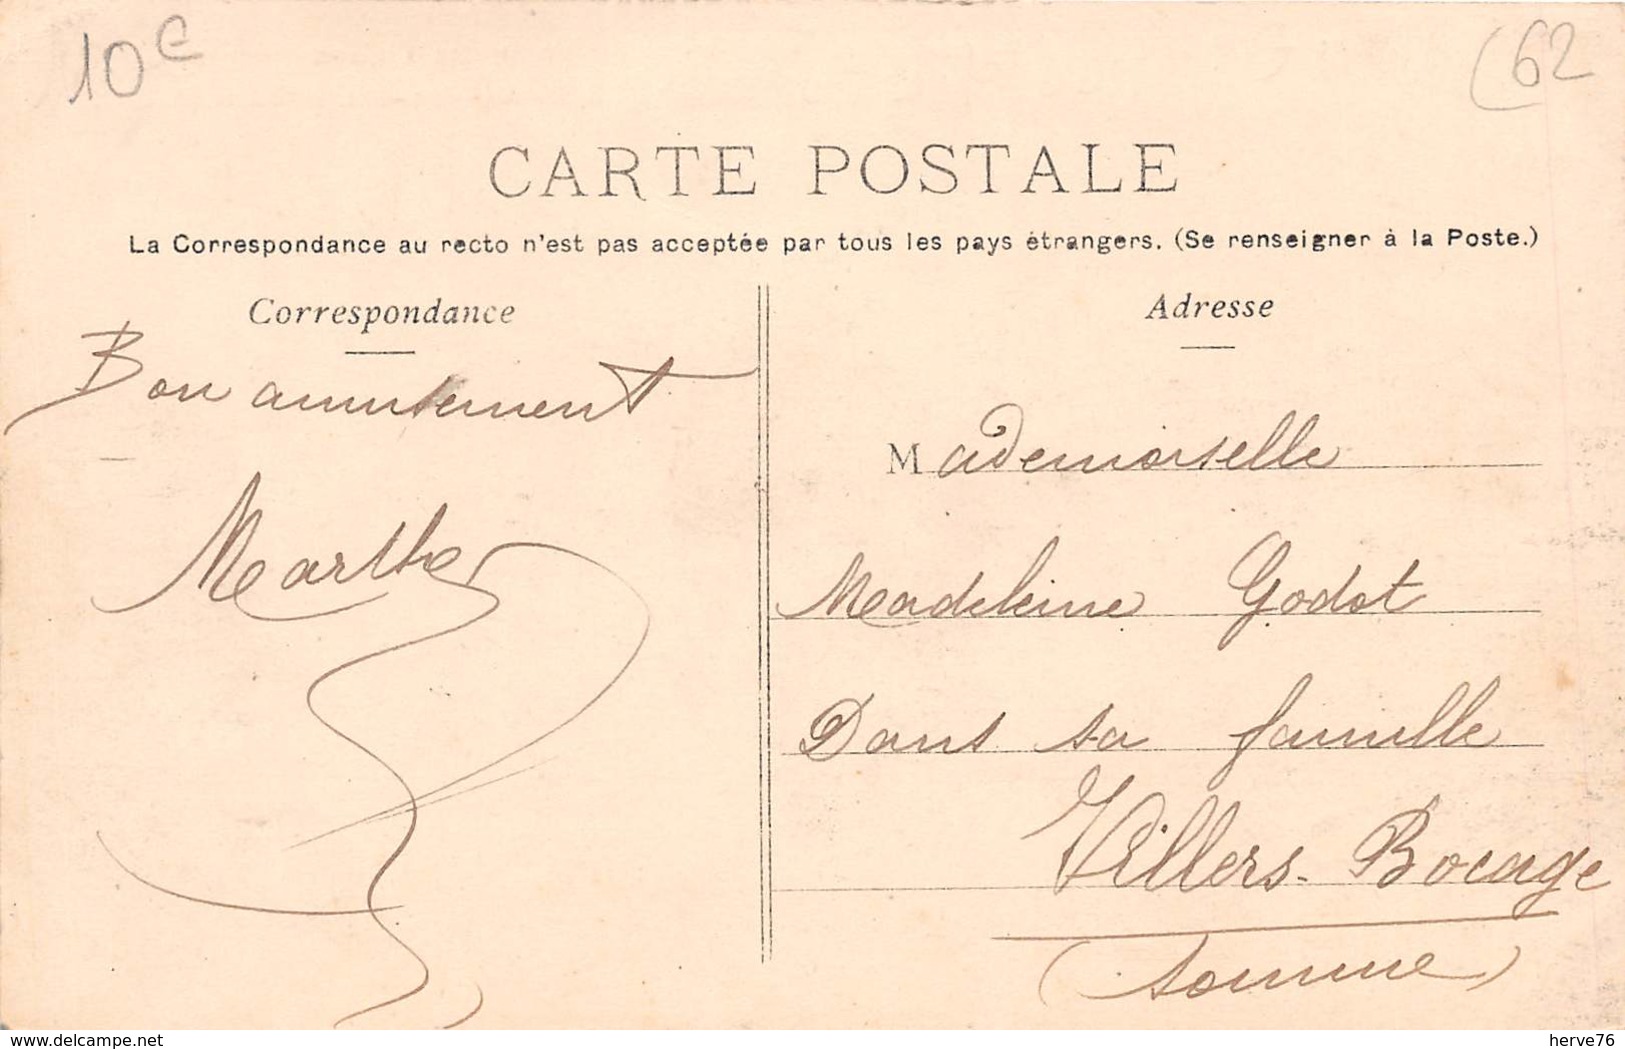 10€
(62
CARTE POSTALE
La Correspondance au recto n'est pas acceptée par tous les pays étrangers. (Se renseigner à la Poste.)
Correspondance
Bon amusement
Marthe
Adresse
Mademoiselle
Madeleine Godot
Dans sa famille
Villers-Bocage
(Somme)
delcampe.net
herve76